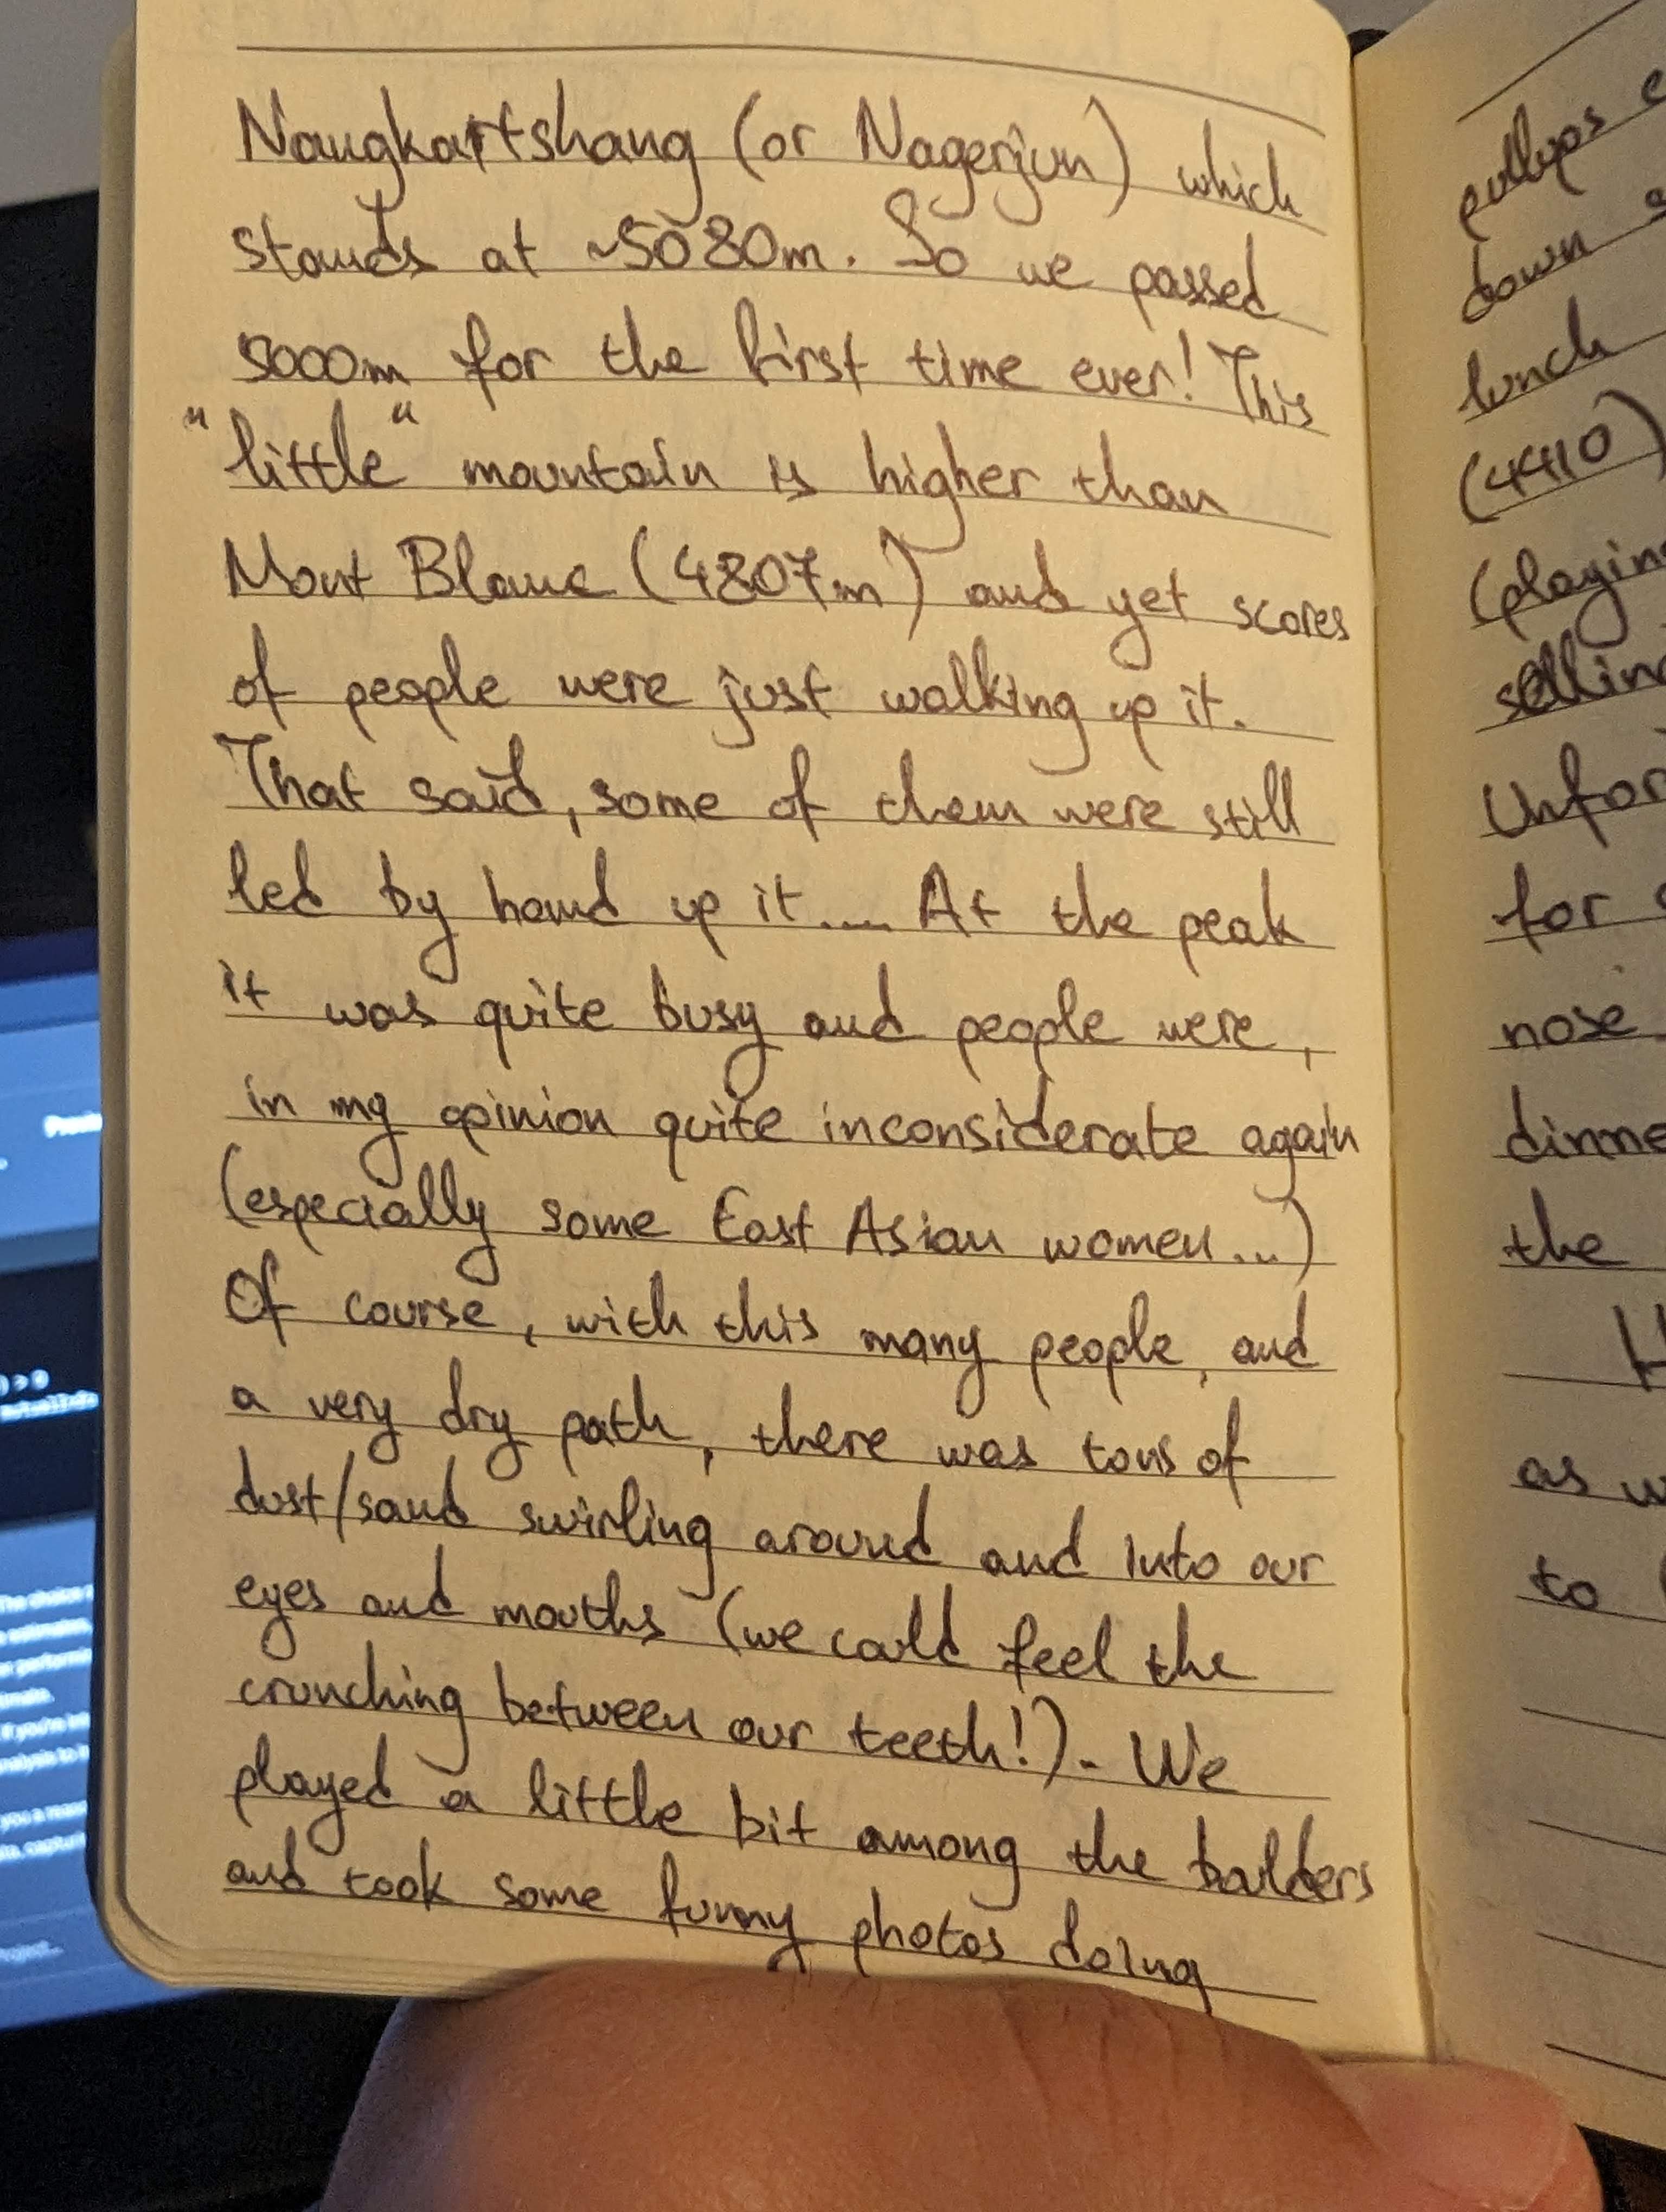 Nangkartshang (or Nagerjun) which
stands at ~5080m. So we passed
5000m for the first time ever! This
"little" mountain is higher than
Mont Blanc (4807m) and yet scores
of people were just walking up it.
That said, some of them were still
led by hand up it.... At the peak
it was quite busy and people were,
in my opinion quite inconsiderate again
(especially some East Asian women...)
Of course, with this many people, and
a very dry path, there was tons of
dust/sand swirling around and into our
eyes and mouths (we could feel the
crunching between our teeth!). We
played a little bit among the boulders
and took some funny photos doing
pullups
down
lunch
(4410)
(playing
selling
for
nose
the
as
to